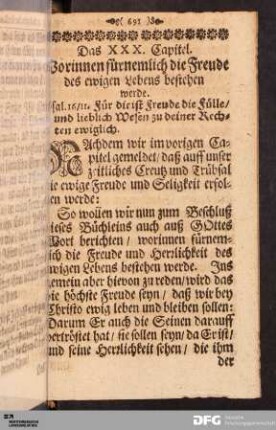 691
Das XXX. Capitel.
Worinnen fürnemlich die Freude
des ewigen Lebens bestehen
werde.
Für dir ist Freude die Fülle/
und lieblich Wesen zu deiner Rech-
ten ewiglich.
NAchdem wir im vorigen Ca-
pitel gemeldet/ daß auff unser
zeitliches Creutz und Trübsal
die ewige Freude und Seligkeit erfol-
gen werde:
So wollen wir nun zum Beschluß
dieses Büchleins auch auß GOttes
Wort berichten/ worinnen fürnem-
lich die Freude und Herrlichkeit des
ewigen Lebens bestehen werde. Ins
gemein aber hievon zu reden/ wird das
die höchste Freude seyn/ daß wir bey
Christo ewig leben und bleiben sollen:
Darum Er auch die Seinen darauff
vertröstet hat/ sie sollen seyn/ da Er ist/
und seine Herrlichkeit sehen/ die ihm
der
DFG